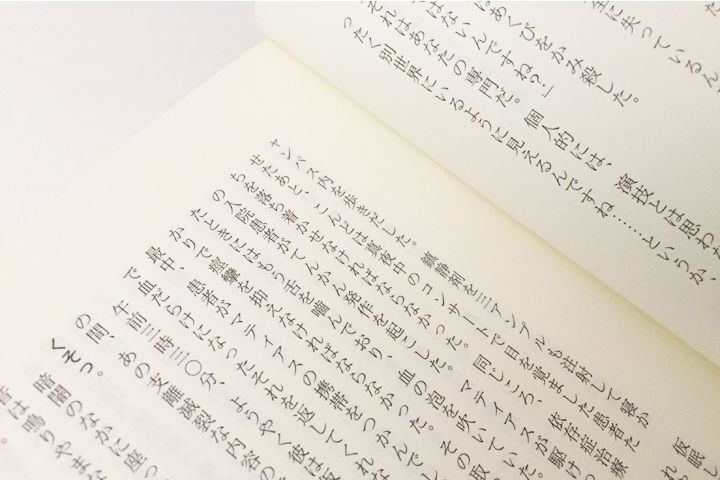 全に失っているん
はあくびをかみ殺した。
はないんですね?」
それはあなたの専門だ。個人的には、演技とは思わ
ったく別世界にいるように見えるんですね……というか、
仮眠し
れ
ャンパス内を歩きだした。鎮静剤を三アンプルも注射して寝か
せたあと、こんどは真夜中のコンサートで目を覚ました患者た
ちを落ち着かせなければならなかった。同じころ、依存症治療
の入院患者がてんかん発作を起こした。マティアスが駆けつ
たときにはもう舌を噛んでおり、血の泡を吹いていた。
かりで痙攣を抑えなければならなかった。その取
最中、患者がマティアスの携帯をつかんで
で血だらけになったそれを返してくれな
午前三時三〇分、ようやく彼は仮
の間、あの支離滅裂な内容の
くそっ。
暗闇のなかに座っ
音は鳴りやまな